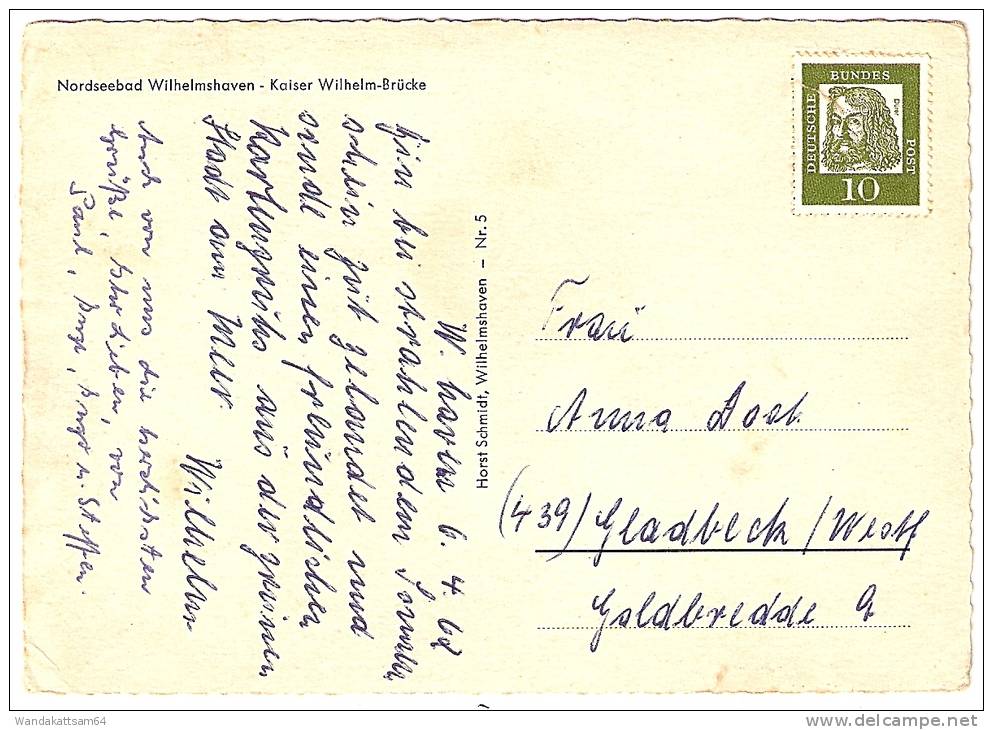 Nordseebad Wilhelmshaven - Kaiser Wilhelm-Brücke
W. haven 6. 4. 62
Hier bei strahlendem Sonnen
schein gut gelandet und
sende einen freundlichen
Kartengruß aus der grünen
Stadt am Meer.
Wilhelm
Auch von uns die herzlichsten
Grüße, Ihr Lieben, von
Paul, u. Steffen.
Horst Schmidt, Wilhelmshaven - Nr. 5
DEUTSCHE
BUNDES
POST
Dürer
10
Frau
Anna Dost
(439) Gladbeck / Westf
Goldbredde 9
Wandakattsam64
delcampe.net